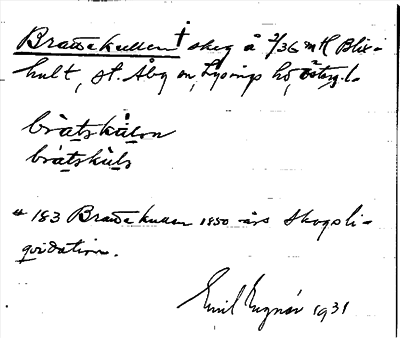 Brattekullen † skog å 2/36 mtl Blix-
hult, St. Åby sn, Lysings hd, Östergl.
bràtskúlən
bràtskùls
# 183 Brattekullen 1850 års skogsli-
qvidation.
Emil 1931